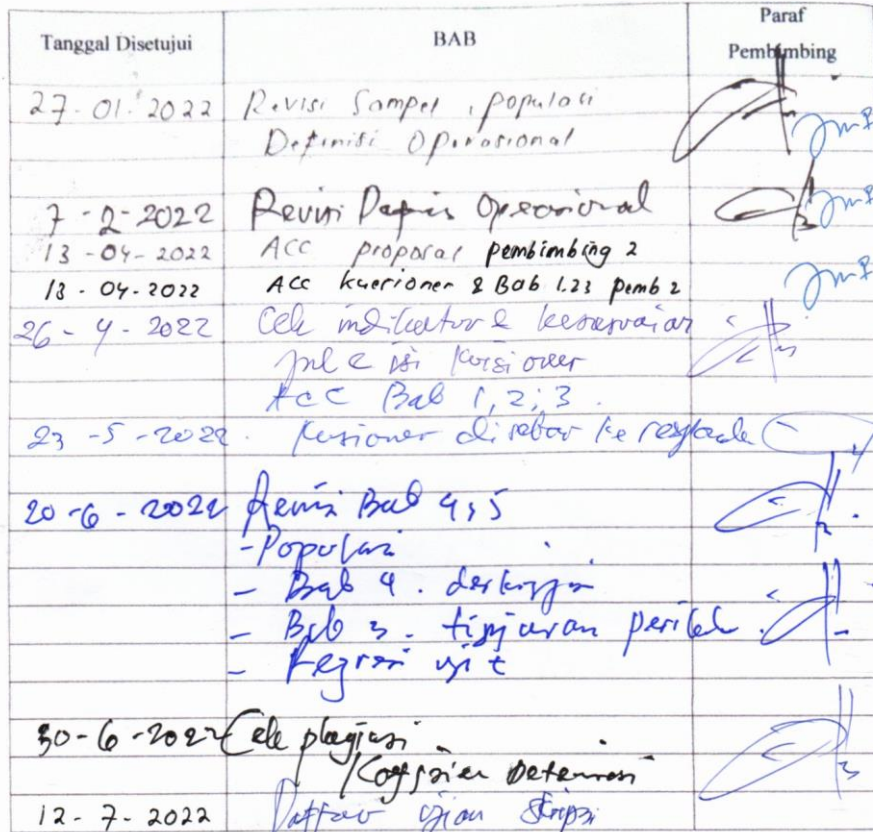 Tanggal Disetujui BAB Paraf
Pembimbing
27-01-2022 Revisi Sampel, populasi
Definisi Operasional
7-2-2022 Revisi Operasional
13-04-2022 ACC proposal pembimbing 2
13-04-2022 ACC kuesioner & Bab 1.23 pemb 2
26-4-2022 Cek indikator & kesesuaian
isi kuisioner
ACC Bab 1, 2, 3.
23-5-2022. Kusioner disebar ke
20-6-2022 Revisi Bab 4, 5
- Populasi
- Bab 4. deskripsi
- Bab tinjauan
- Regresi uji t
30-6-2022 Cek plagiasi
Koefisien Determinasi
12-7-2022 Daftar ujian skripsi